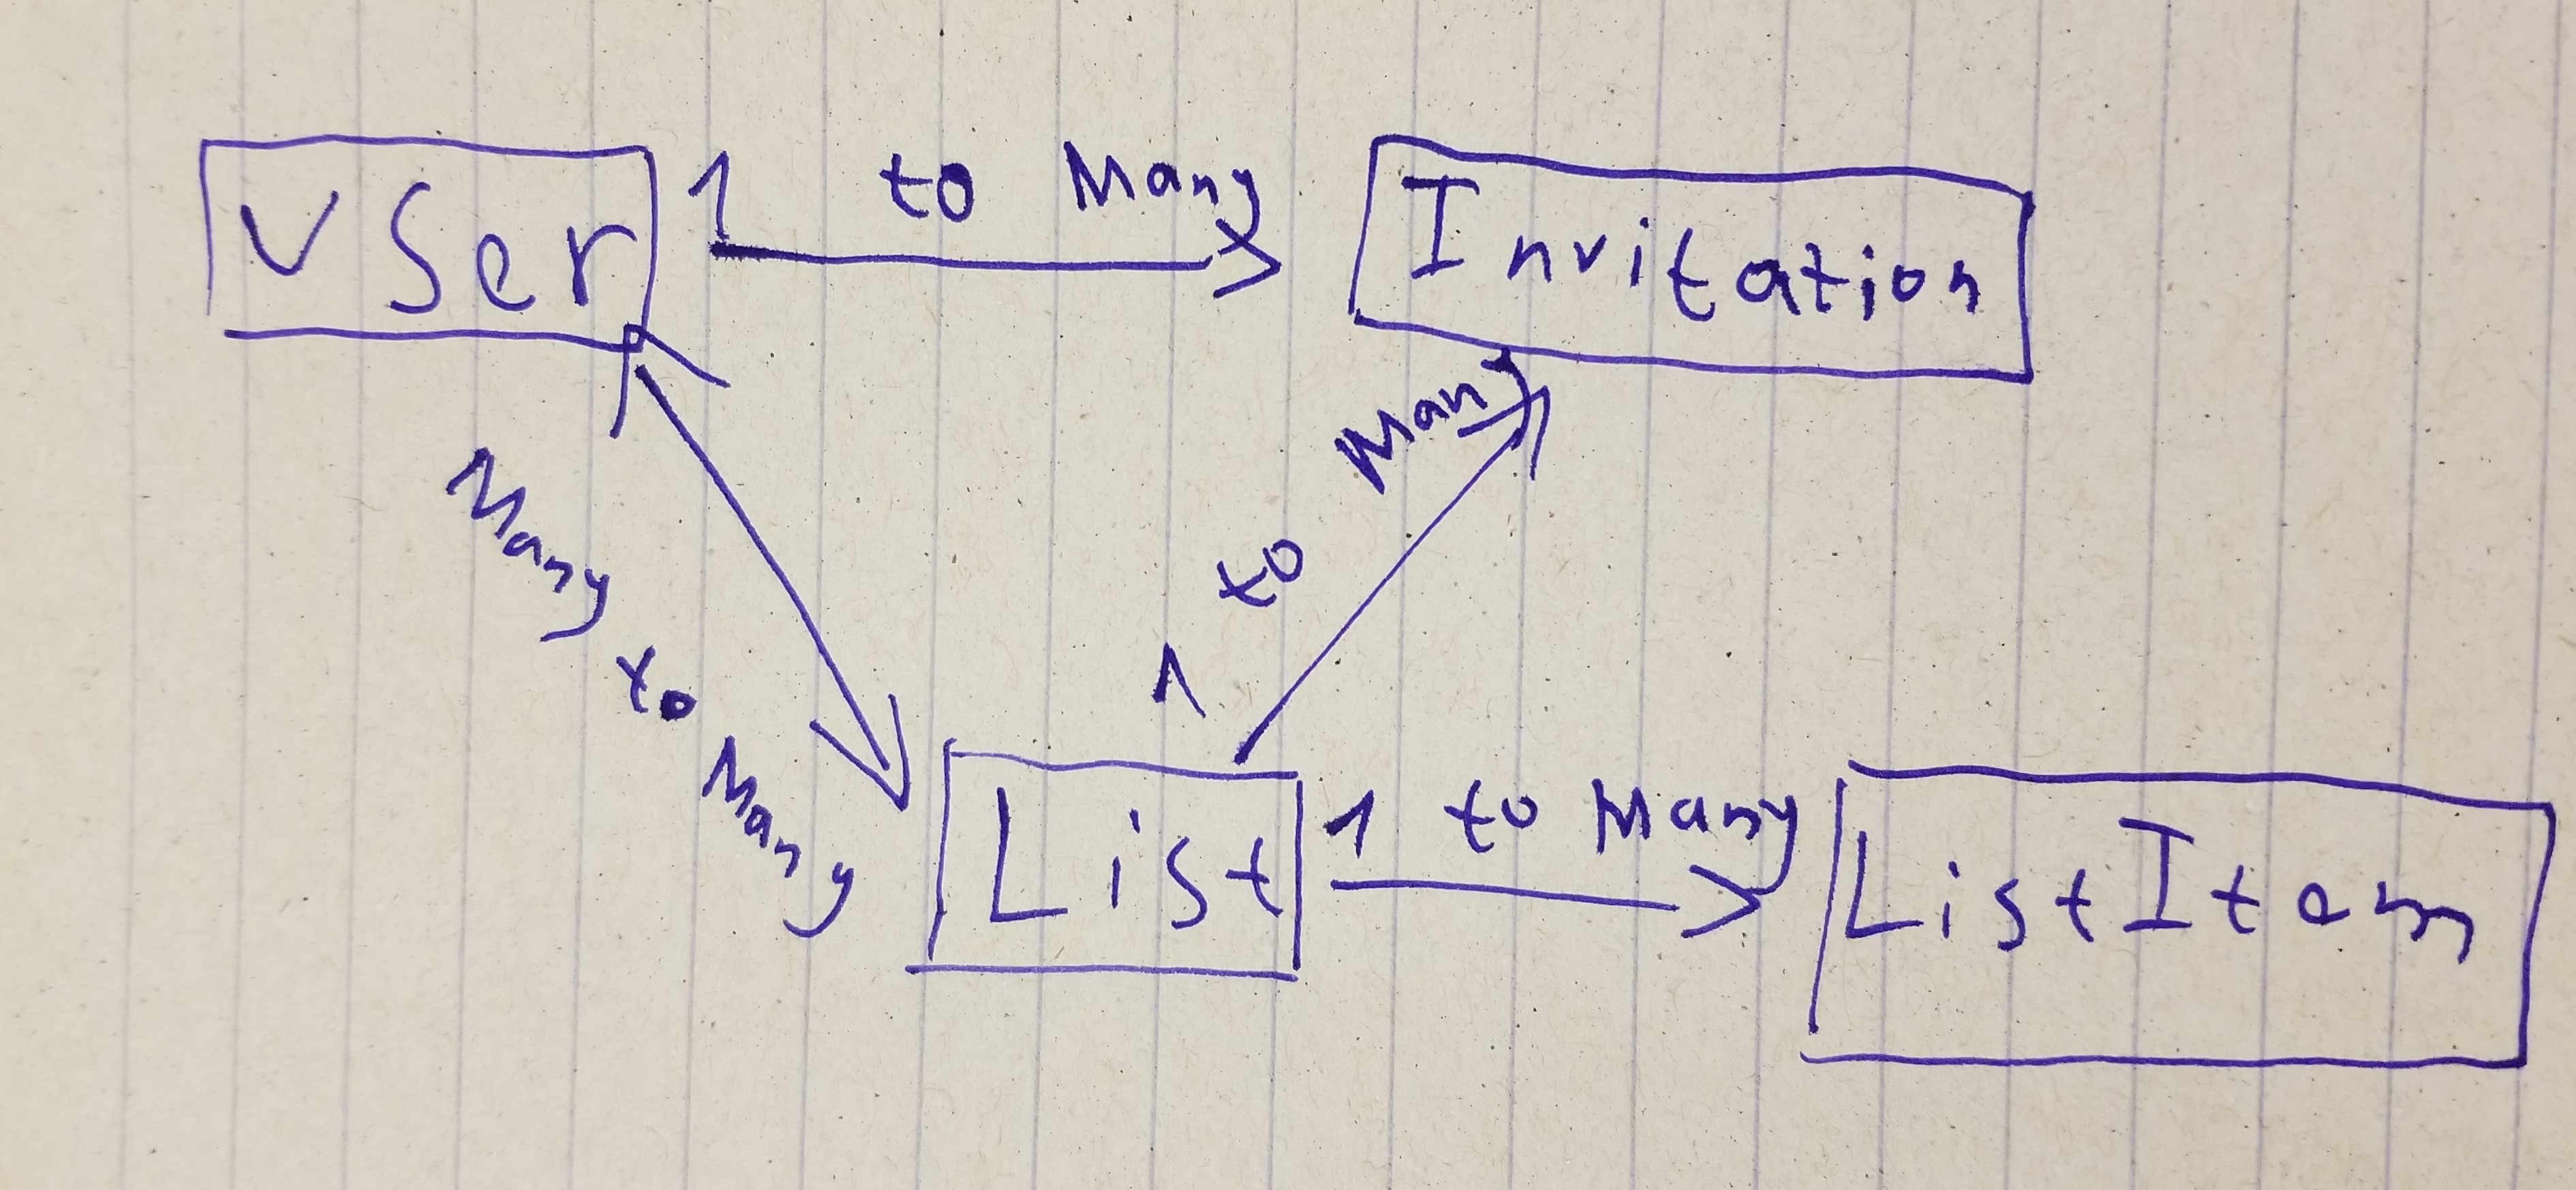 User
1 to Many
Invitation
Many to Many
1 to Many
List
1 to Many
ListItem